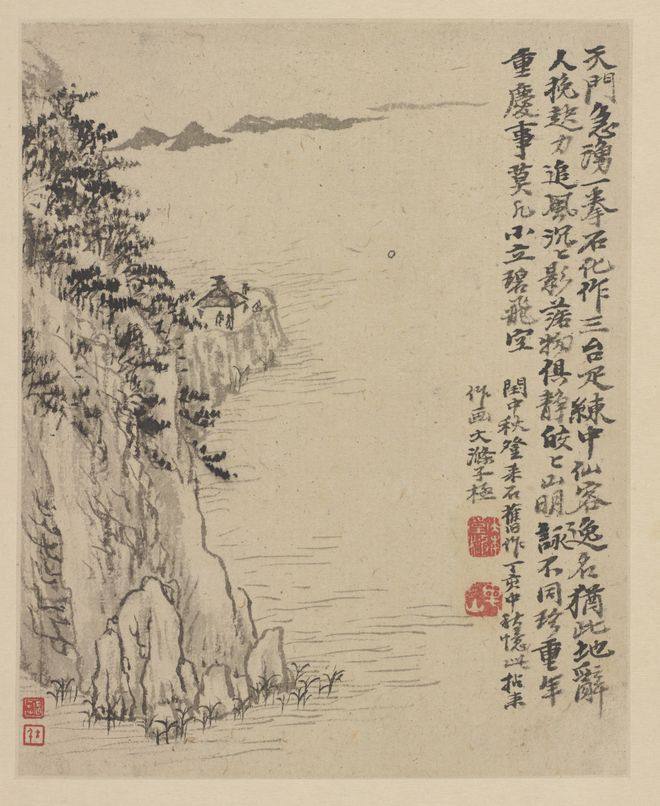 天門急湧一拳石化作三台疋練中仙客逸名猶此地辭
人挽力追風沉々影落物俱靜皎々山明詠不同珍重年
重慶事莫凡小立碧飛空
閏中秋登采石舊作丁亥中秋憶此拈來
作画大滌子極